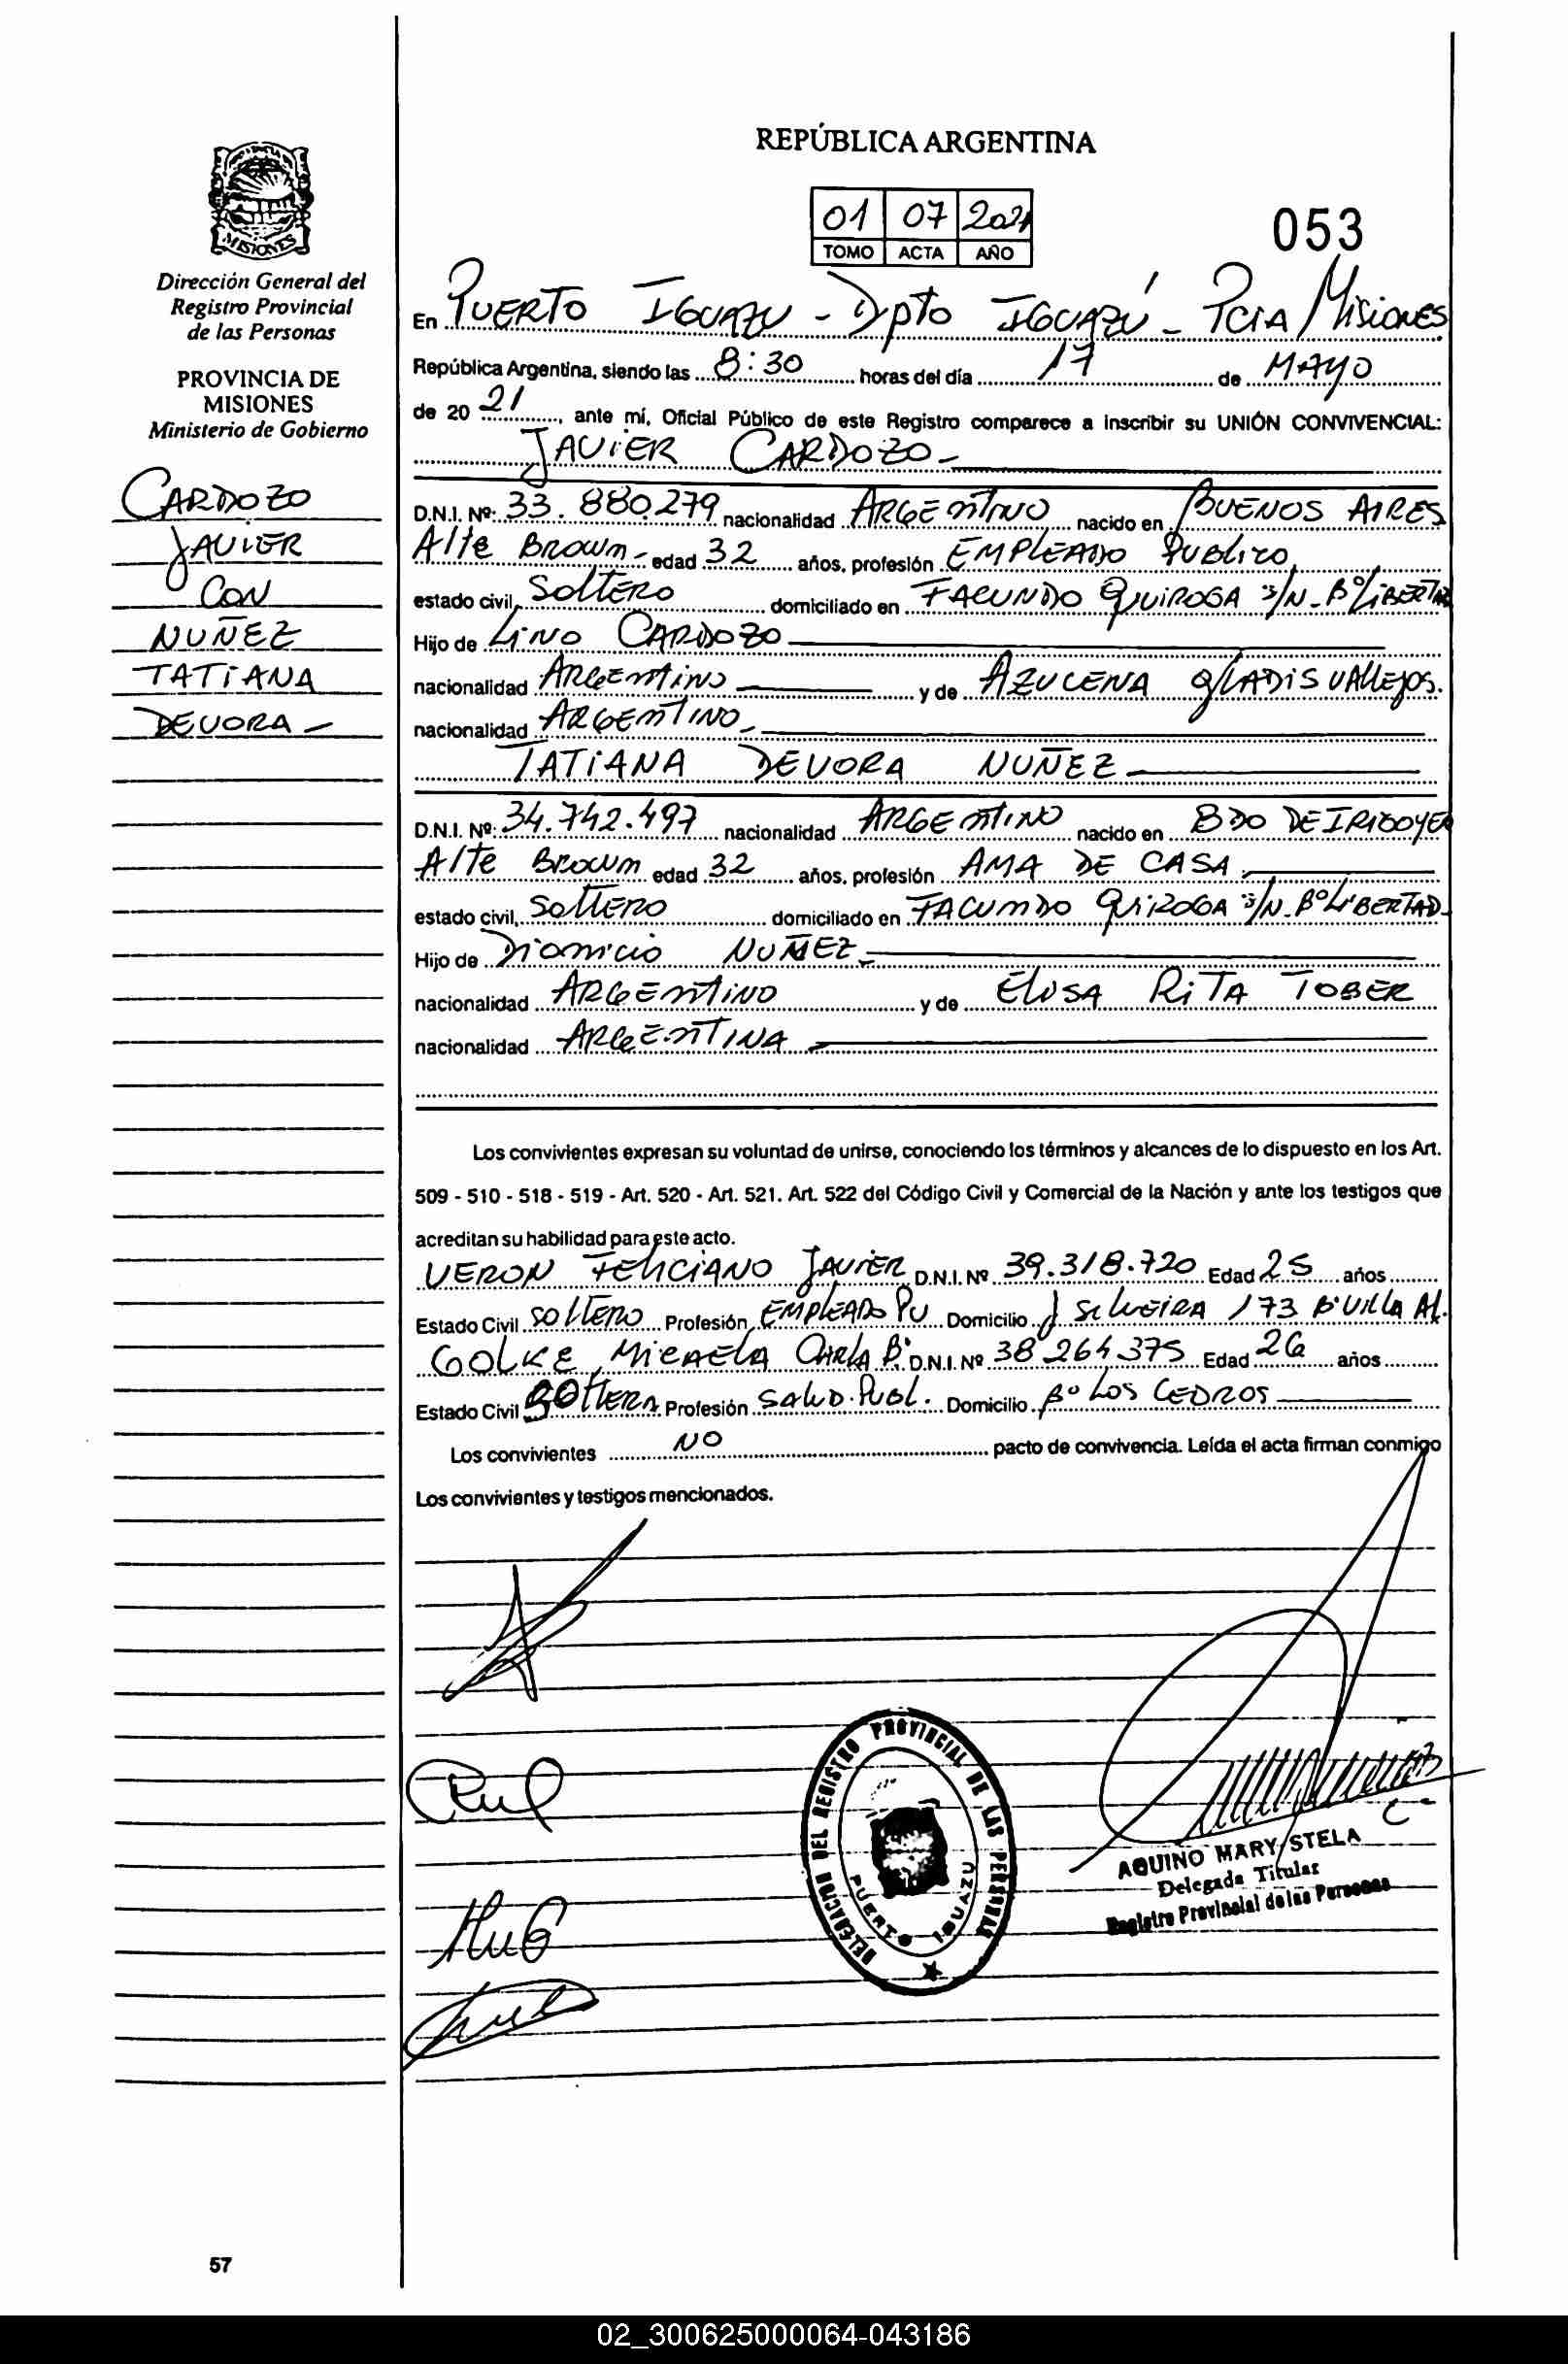 REPÚBLICA ARGENTINA
01 07 2021
TOMO ACTA AÑO
053
MISIONES
Dirección General del
Registro Provincial
de las Personas
PROVINCIA DE
MISIONES
Ministerio de Gobierno
CARDOZO
JAVIER
CON
NUÑEZ
TATIANA
DEVORA -
En PUERTO IGUAZU - Dpto IGUAZÚ - PCIA MISIONES
República Argentina, siendo las 8:30 horas del día 17 de MAYO
de 20 21, ante mí, Oficial Público de este Registro comparece a inscribir su UNIÓN CONVIVENCIAL:
JAVIER CARDOZO -
D.N.I. Nº: 33.880.279 nacionalidad ARGENTINO nacido en BUENOS AIRES
Alte BROWN - edad 32 años, profesión EMPLEADO PUBLICO
estado civil, SOLTERO domiciliado en FACUNDO QUIROGA S/N - Bº LIBERTAD
Hijo de LINO CARDOZO
nacionalidad ARGENTINO y de AZUCENA GLADIS VALLEJOS.
nacionalidad ARGENTINO -
TATIANA DEVORA NUÑEZ
D.N.I. Nº: 34.742.497 nacionalidad ARGENTINO nacido en BDO DE IRIGOYEN
Alte BROWN edad 32 años, profesión AMA DE CASA
estado civil, SOLTERO domiciliado en FACUNDO QUIROGA S/N - Bº LIBERTAD -
Hijo de DIONICIO NUÑEZ -
nacionalidad ARGENTINO y de ELVSA RITA TOBER
nacionalidad ARGENTINA
Los convivientes expresan su voluntad de unirse, conociendo los términos y alcances de lo dispuesto en los Art.
509 - 510 - 518 - 519 - Art. 520 - Art. 521. Art. 522 del Código Civil y Comercial de la Nación y ante los testigos que
acreditan su habilidad para este acto.
VERON FELICIANO JAVIER D.N.I. Nº 39.318.720 Edad 25 años
Estado Civil SOLTERO Profesión EMPLEADO PU Domicilio J SILVEIRA 173 Bº VILLA AL.
GOLKE, MICAELA CARLA B. D.N.I. Nº 38 264 375 Edad 26 años
Estado Civil SOLTERA Profesión SALUD PUBL. Domicilio Bº LOS CEDROS
Los convivientes NO pacto de convivencia. Leída el acta firman conmigo
Los convivientes y testigos mencionados.
DELEGACION DEL REGISTRO PROVINCIAL DE LAS PERSONAS
PUERTO IGUAZU
AQUINO MARY STELA
Delegada Titular
Registro Provincial de las Personas
57
02_300625000064-043186